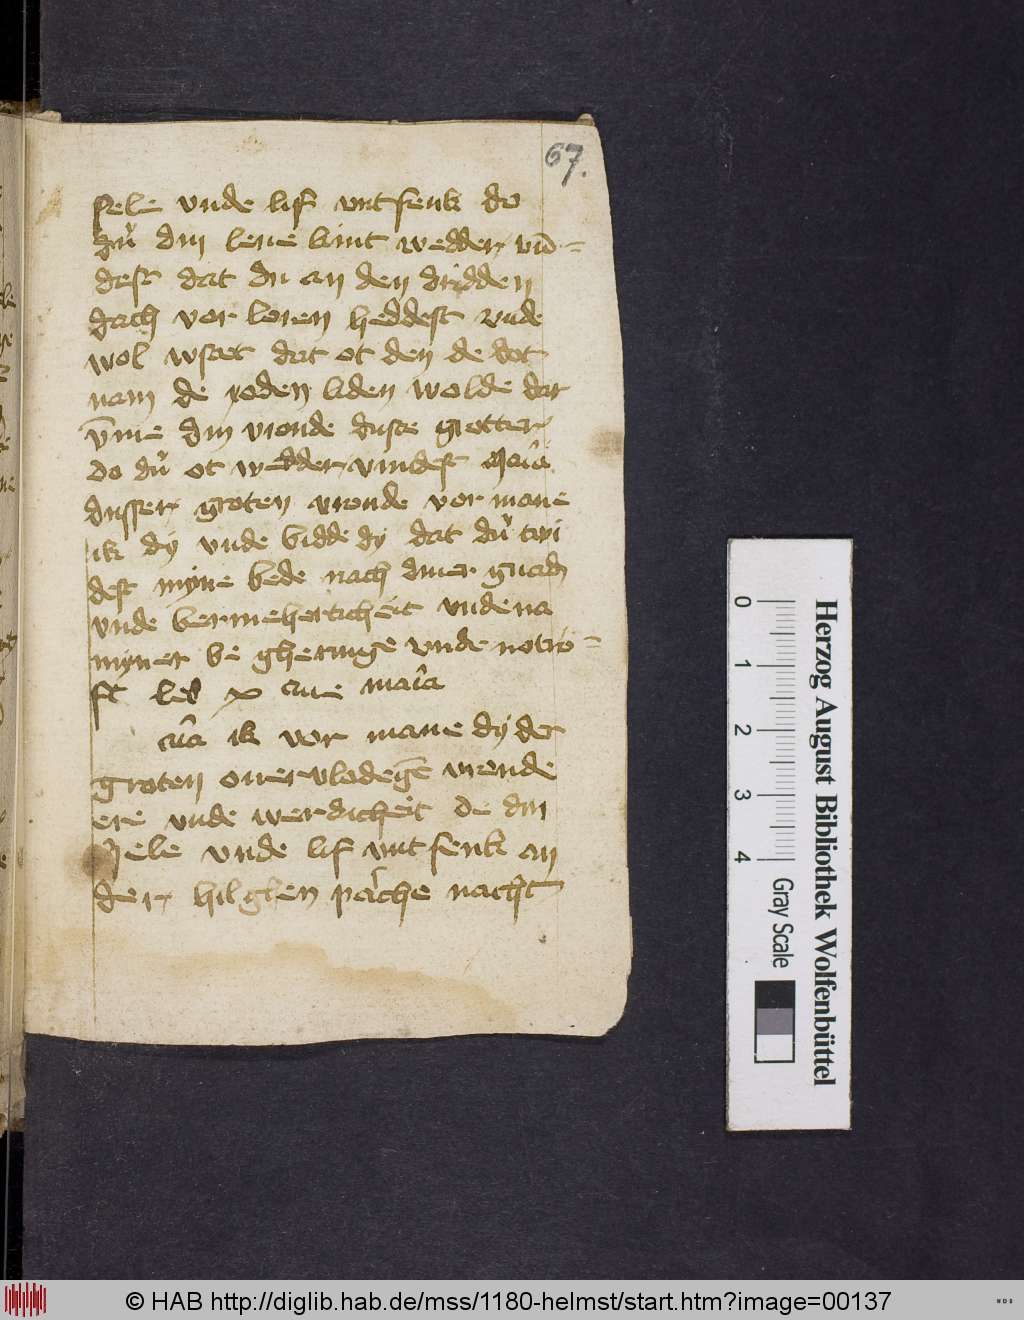 67.
sele vnde lif vntfenk do
du din leue kint wedder vū=
dest dat du an den dridden
dach vor loren heddest vnde
wol wstet dat ot den de dot
nam de ioden liden wolde dat
v̄me din vronde duste grotter
do du ot wedder vindest Maiâ
dusser groten vronde vor mane
ik dy vnde bidde dy dat du twi
dest myne bede nach diner gnadē
vnde bermeherticheit vnde na
myner be gheringe vnde notro=
ft les x aue maiâ
ik vor mane dy der
groten ouervlodegē vronde
ere vnde werdicheit de din
Sele vnde lif vntfenk an
der hilghen pasche nacht
Herzog August Bibliothek Wolfenbüttel
0 1 2 3 4
Gray Scale
© HAB http://diglib.hab.de/mss/1180-helmst/start.htm?image=00137